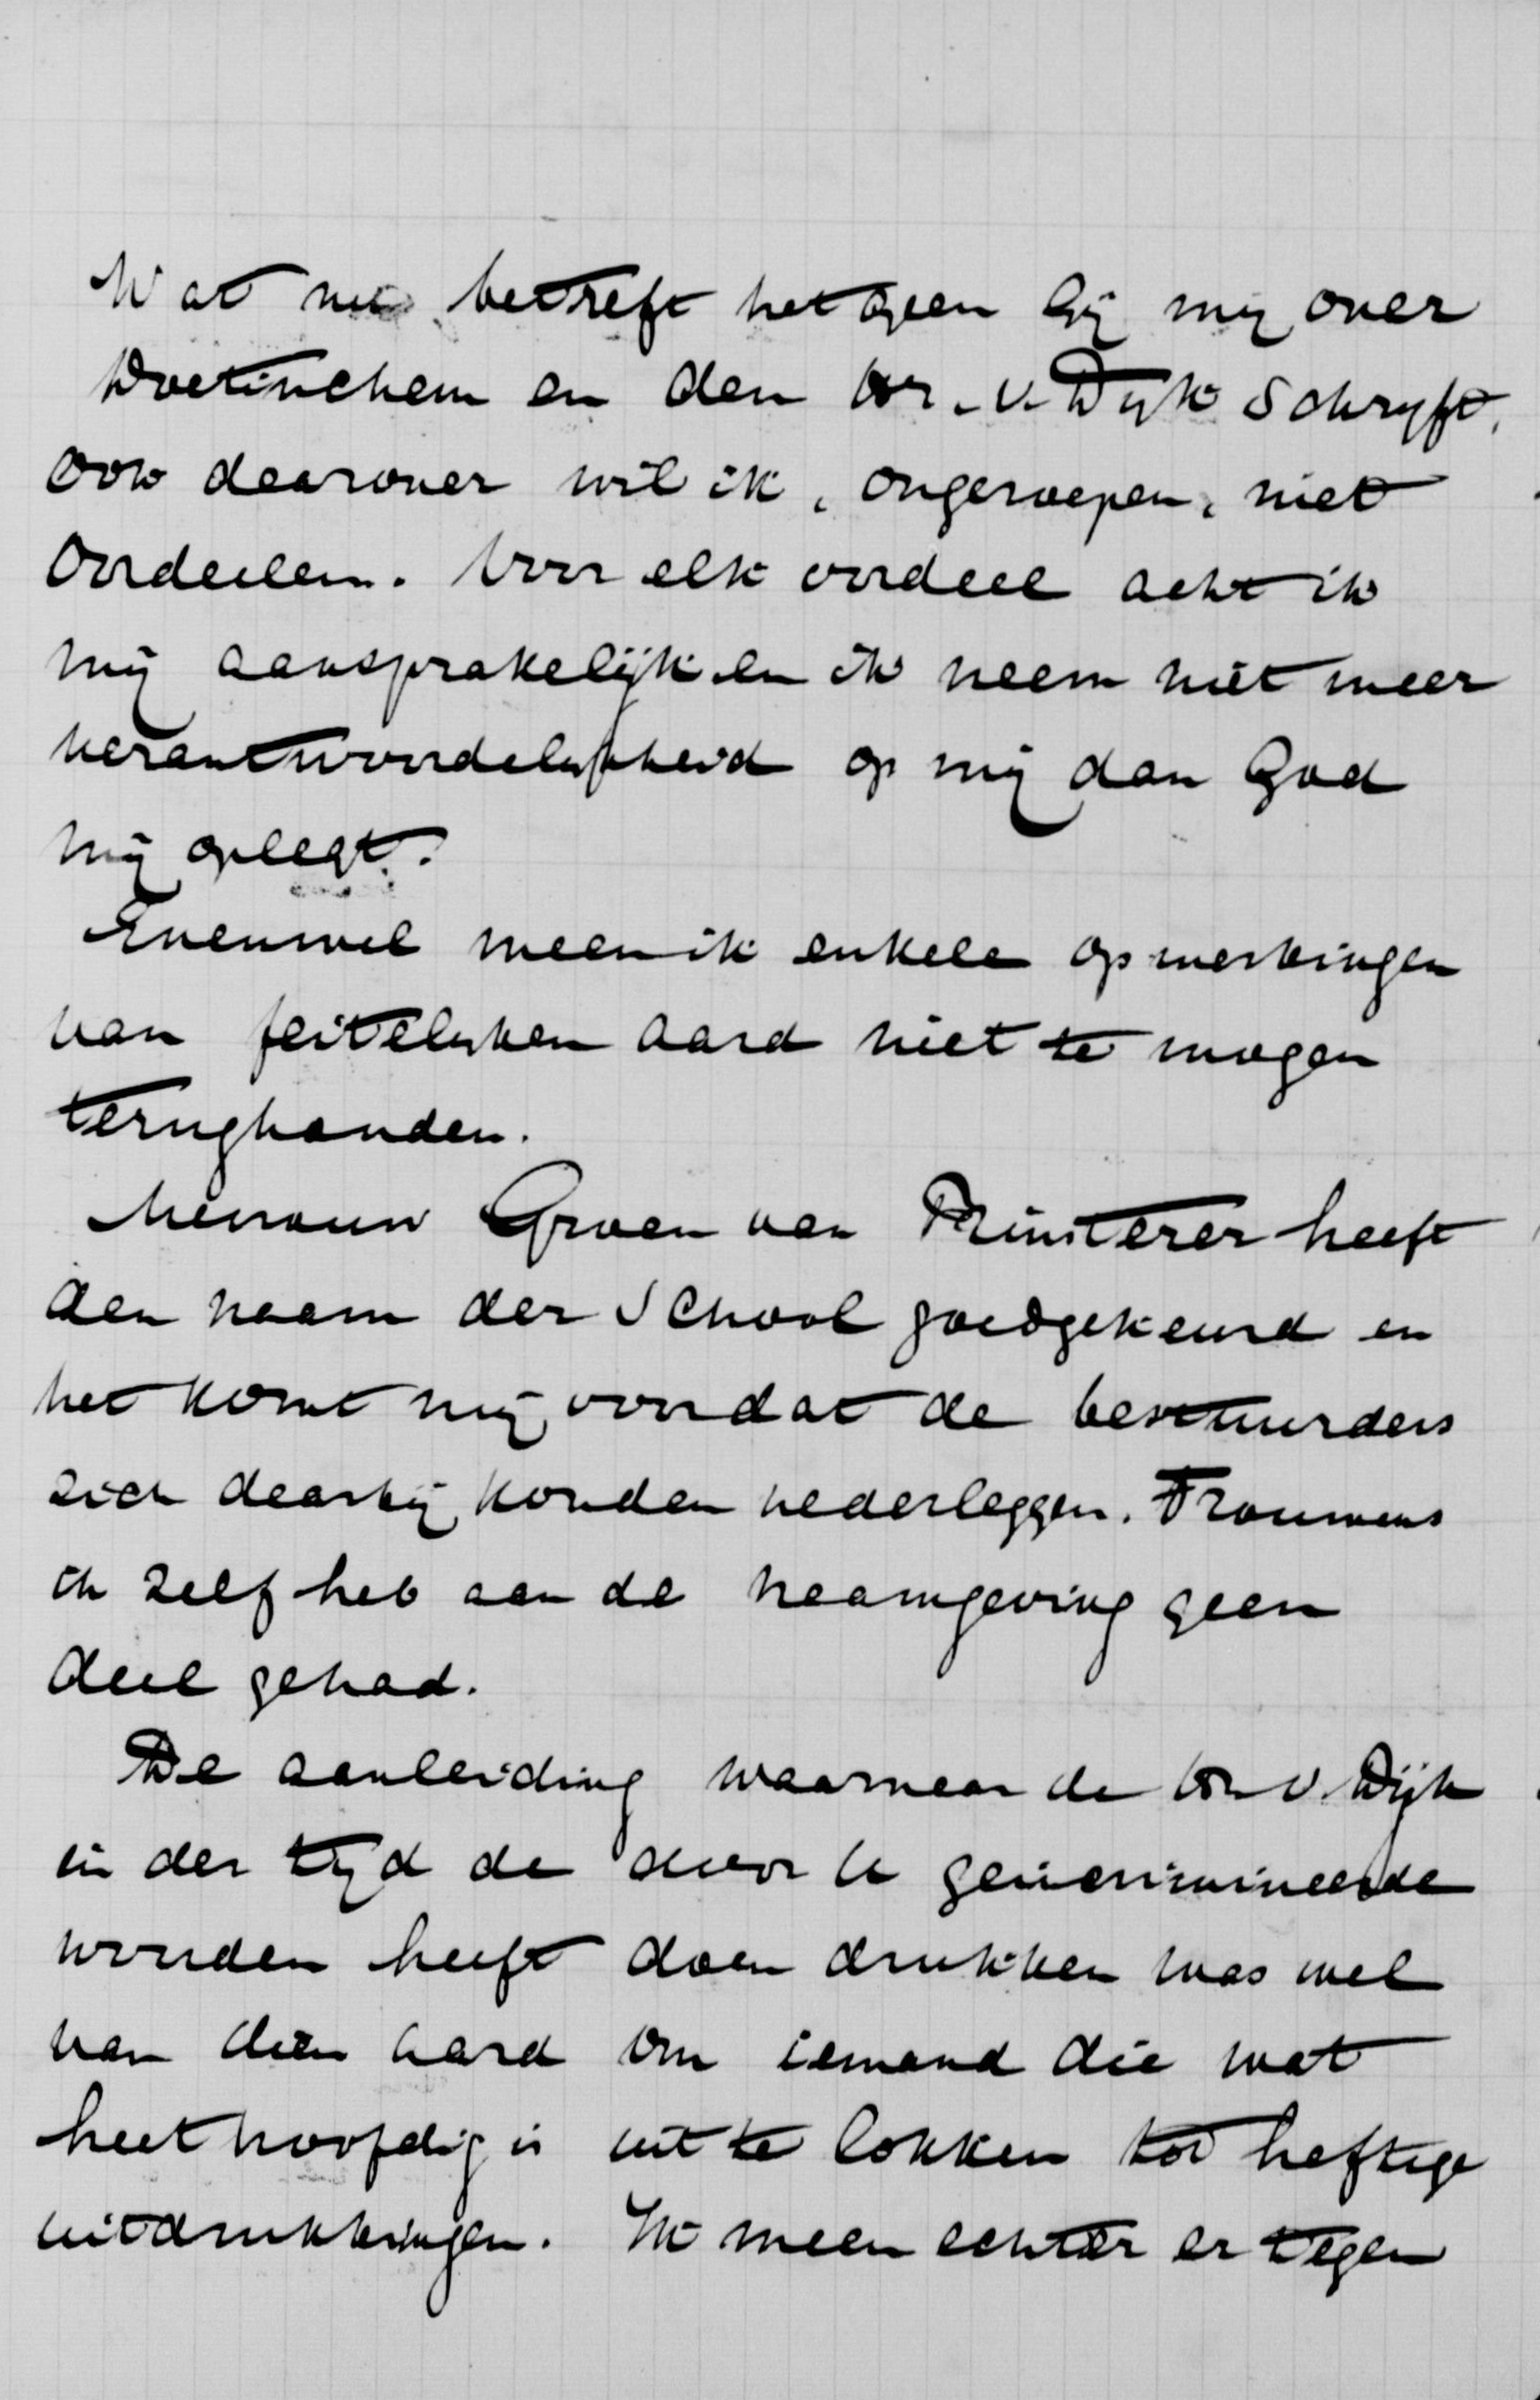 Wat nu betreft hetgeen Gij mij over
Doetinchem en den br. v. Dijk schrijft,
ook daarover wil ik, ongeroepen, niet
oordeelen. Voor elk oordeel acht ik
mij aansprakelijk en ik neem niet meer
verantwoordelijkheid op mij dan God
mij oplegt.
Evenwel meen ik enkele opmerkingen
van feitelijken aard niet te mogen
terughouden.
Mevrouw Groen van Prinsterer heeft
den naam der School goedgekeurd en
het komt mij voor dat de bestuurders
zich daarbij konden nederleggen. Trouwens
ik zelf heb aan de naamgeving geen
deel gehad.
De aanleiding waarnaar de br v. Dijk
in der tijd de door U geïncrimineerde
woorden heeft doen drukken was wel
van dien aard om iemand die wat
heethoofdig is uit te lokken tot heftige
uitdrukkingen. Ik meen echter er tegen